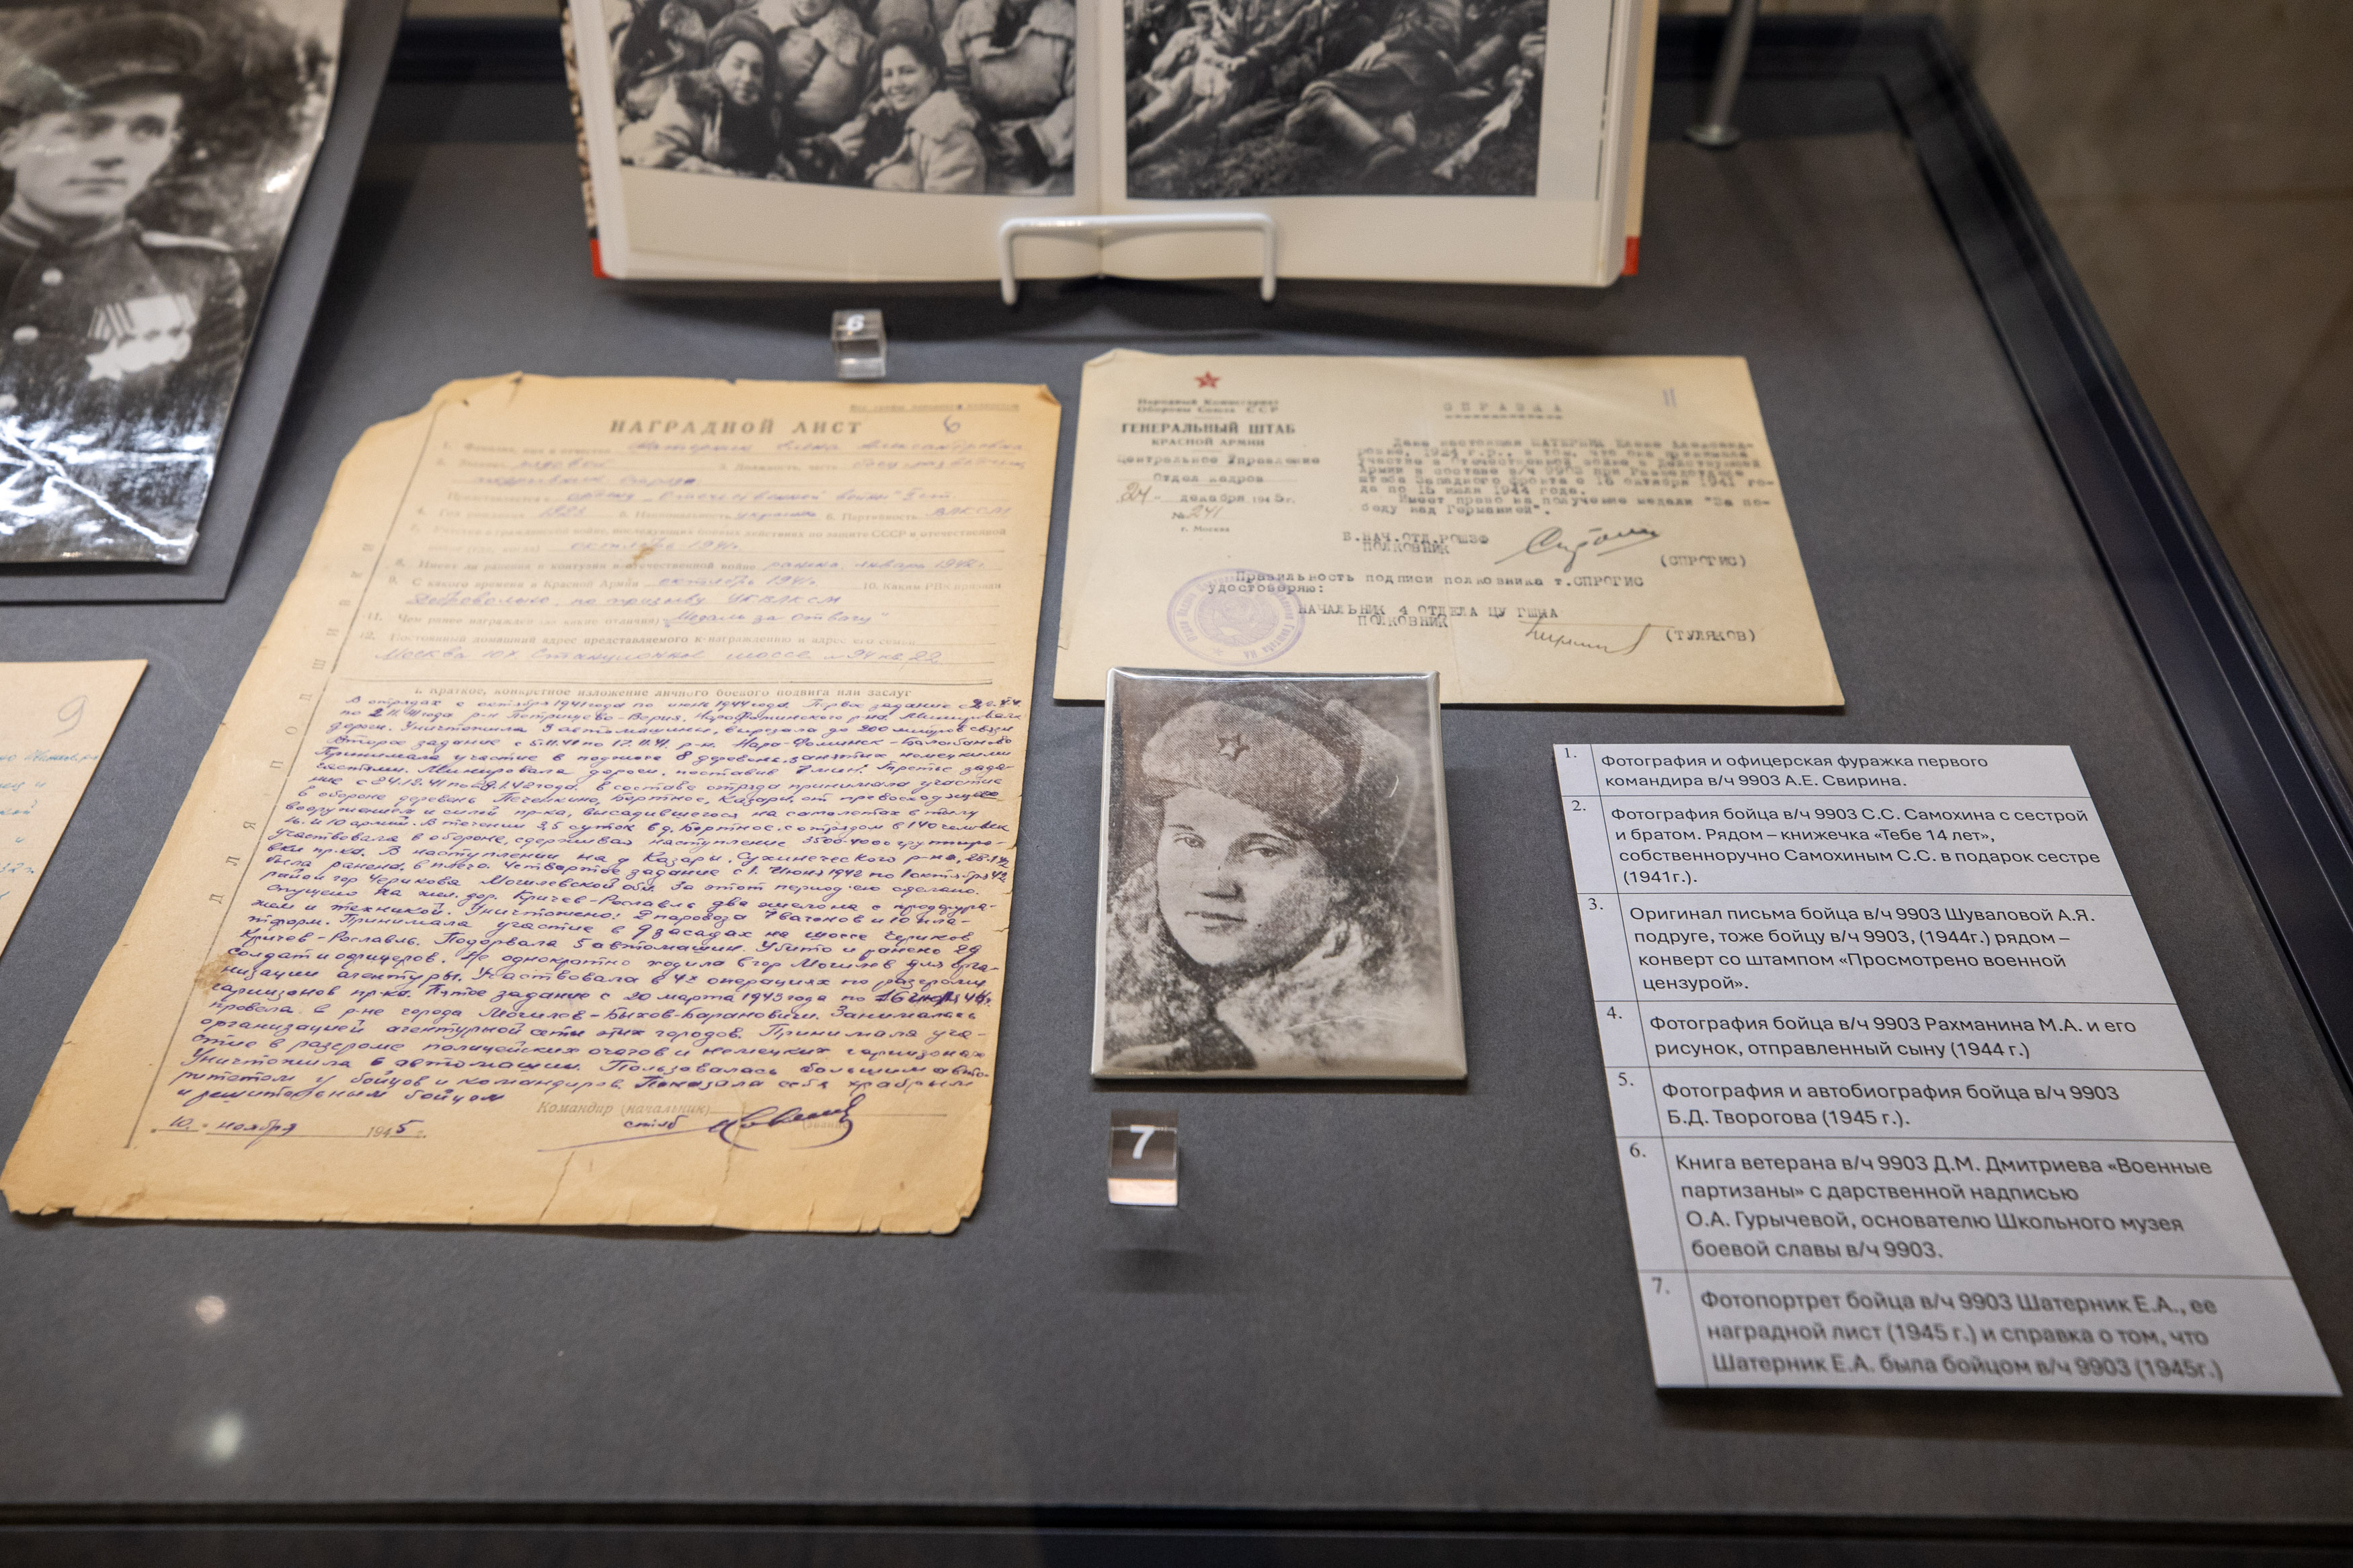 6
НАГРАДНОЙ ЛИСТ
6
1. Фамилия, имя и отчество Шатерник Елена Александровна
2. Звание рядовой 3. Должность, часть
подрывник отряда
Представляется к ордену „Отечественной войны" I ст.
4. Год рождения 1923 5. Национальность украинка 6. Партийность ВЛКСМ
октябрь 1941г.
8. Имеет ли ранения и контузии в отечественной войне ранена, январь 1942г.
9. С какого времени в Красной Армии октябрь 1941г. 10. Каким РВК призван
Добровольно, по призыву ЦК ВЛКСМ
11. Чем ранее награжден (за какие отличия) „Медаль за Отвагу"
12. Постоянный домашний адрес представляемого к награждению и адрес его семьи
Москва
I. Краткое, конкретное изложение личного боевого подвига или заслуг
В отрядах с октября 1941 года по июль 1944 года. Первое задание
дороги. Уничтожила 3 автомашины, вырезала до 200 метров связи
Второе задание с 5.11.41 по 17.11.41. р-н. Наро-Фоминск-Балабаново
Принимала участие в поджоге 8 деревень, занятых немецкими
частями. Минировала дороги, поставив 7 мин. Третье зада-
ние с 24.12.41 по 29.1.42 года. В составе отряда принимала участие
в обороне деревень Печенкино, Бортное, Казарь, от превосходящего
вооружением и силой пр-ка, высадившегося на самолетах в тылу
16 и 10 армий. В течении 3,5 суток в д. Бортное с отрядом в 140 человек
участвовала в обороне, сдерживая наступление 3500-4000 группиро-
вки пр-ка. В наступлении на д Казари, Сухинического р-на,
была ранена в плечо. Четвертое задание с 1. Июня 1942 по 1 октября 42
район гор Черикова Могилевской обл. За этот период ею сделано:
спущено на жел. дор. Кричев-Рославль два эшелона с
и техникой. Уничтожено: 2 паровоза 7 вагонов и 10 пла-
тформ. Принимала участие в 9 засадах на шоссе Чериков
Кричев-Рославль. Подорвала 5 автомашин. Убито и ранено 29
солдат и офицеров. Не однократно ходила в гор Могилев для орга-
низации агентуры. Участвовала в 4х операциях по разгрому
гарнизонов пр-ка. Пятое задание с 20 марта 1943 года по
провела в р-не города Могилев-Быхов-Барановичи. Занималась
организацией агентурной сети этих городов. Принимала уча-
стие в разгроме полицейских очагов и немецких гарнизонов
Уничтожила 6 автомашин. Пользовалась большим авто-
ритетом у бойцов и командиров. Показала себя храбрым
и решительным бойцом
Командир (начальник)
10. " ноября 1945 г.
Народный Комиссариат
Обороны Союза ССР
ГЕНЕРАЛЬНЫЙ ШТАБ
КРАСНОЙ АРМИИ
Центральное Управление
Отдел кадров
24 - декабря 1945г.
№ 241
г. Москва
11
СПРАВКА
Дана настоящая ШАТЕРНИК Елене Александ-
ровне, 1924 г.р., в том, что она принимала
участие в Отечественной войне в Действующей
Армии в составе в/ч 9903 при Разведотделе
штаба Западного фронта с 15 октября 1941 го-
да по 15 июля 1944 года.
Имеет право на получение медали "За по-
беду над Германией".
ПОЛКОВНИК
(СПРОГИС)
Правильность подписи полковника т.СПРОГИС
удостоверяю:
НАЧАЛЬНИК 4 ОТДЕЛА ЦУ ГШКА
ПОЛКОВНИК
(ТУЛЯКОВ)
9
7
1. Фотография и офицерская фуражка первого
командира в/ч 9903 А.Е. Свирина.
2. Фотография бойца в/ч 9903 С.С. Самохина с сестрой
и братом. Рядом – книжечка «Тебе 14 лет»,
собственноручно Самохиным С.С. в подарок сестре
(1941г.).
3. Оригинал письма бойца в/ч 9903 Шуваловой А.Я.
подруге, тоже бойцу в/ч 9903, (1944г.) рядом –
конверт со штампом «Просмотрено военной
цензурой».
4. Фотография бойца в/ч 9903 Рахманина М.А. и его
рисунок, отправленный сыну (1944 г.)
5. Фотография и автобиография бойца в/ч 9903
Б.Д. Творогова (1945 г.).
6. Книга ветерана в/ч 9903 Д.М. Дмитриева «Военные
партизаны» с дарственной надписью
О.А. Гурычевой, основателю Школьного музея
боевой славы в/ч 9903.
7. Фотопортрет бойца в/ч 9903 Шатерник Е.А., ее
наградной лист (1945 г.) и справка о том, что
Шатерник Е.А. была бойцом в/ч 9903 (1945г.)